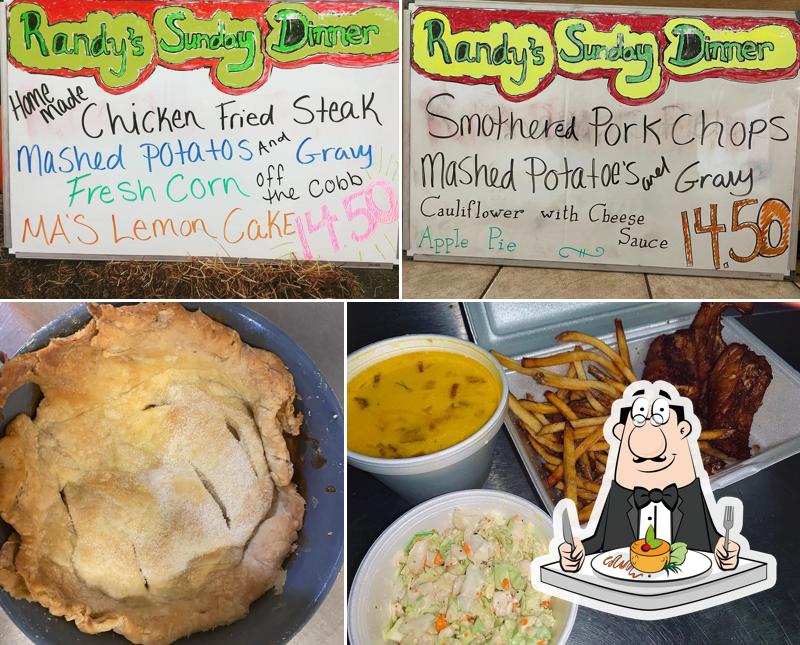 Randy's Sunday Dinner
Home made Chicken Fried Steak
Mashed Potatos And Gravy
Fresh Corn off the Cobb
MA'S Lemon Cake 14.50
Randy's Sunday Dinner
Smothered Pork Chops
Mashed Potatoe's and Gravy
Cauliflower with Cheese Sauce
Apple Pie 14.50